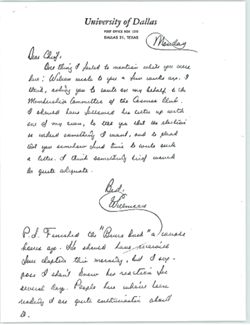 University of Dallas
POST OFFICE BOX 1330
DALLAS 21, TEXAS
Monday
Dear Chief,
One thing I failed to mention while you were
here: Wilson wrote to you a few weeks ago, I
think, asking you to write on my behalf to the
Membership Committee of the Cosmos Club.
I should have followed his letter up with
one of my own, to tell you that the election
is indeed something I want, and to plead
that you somehow find time to write such
a letter. I think something brief would
be quite adequate.
Best,
Willmoore
P.S. Finished the "Burns book" a couple
hours ago. He should have received
four chapters this morning, but I sup-
pose I shan't know his reaction for
several days. People here who've been
reading it are quite enthusiastic about
it.